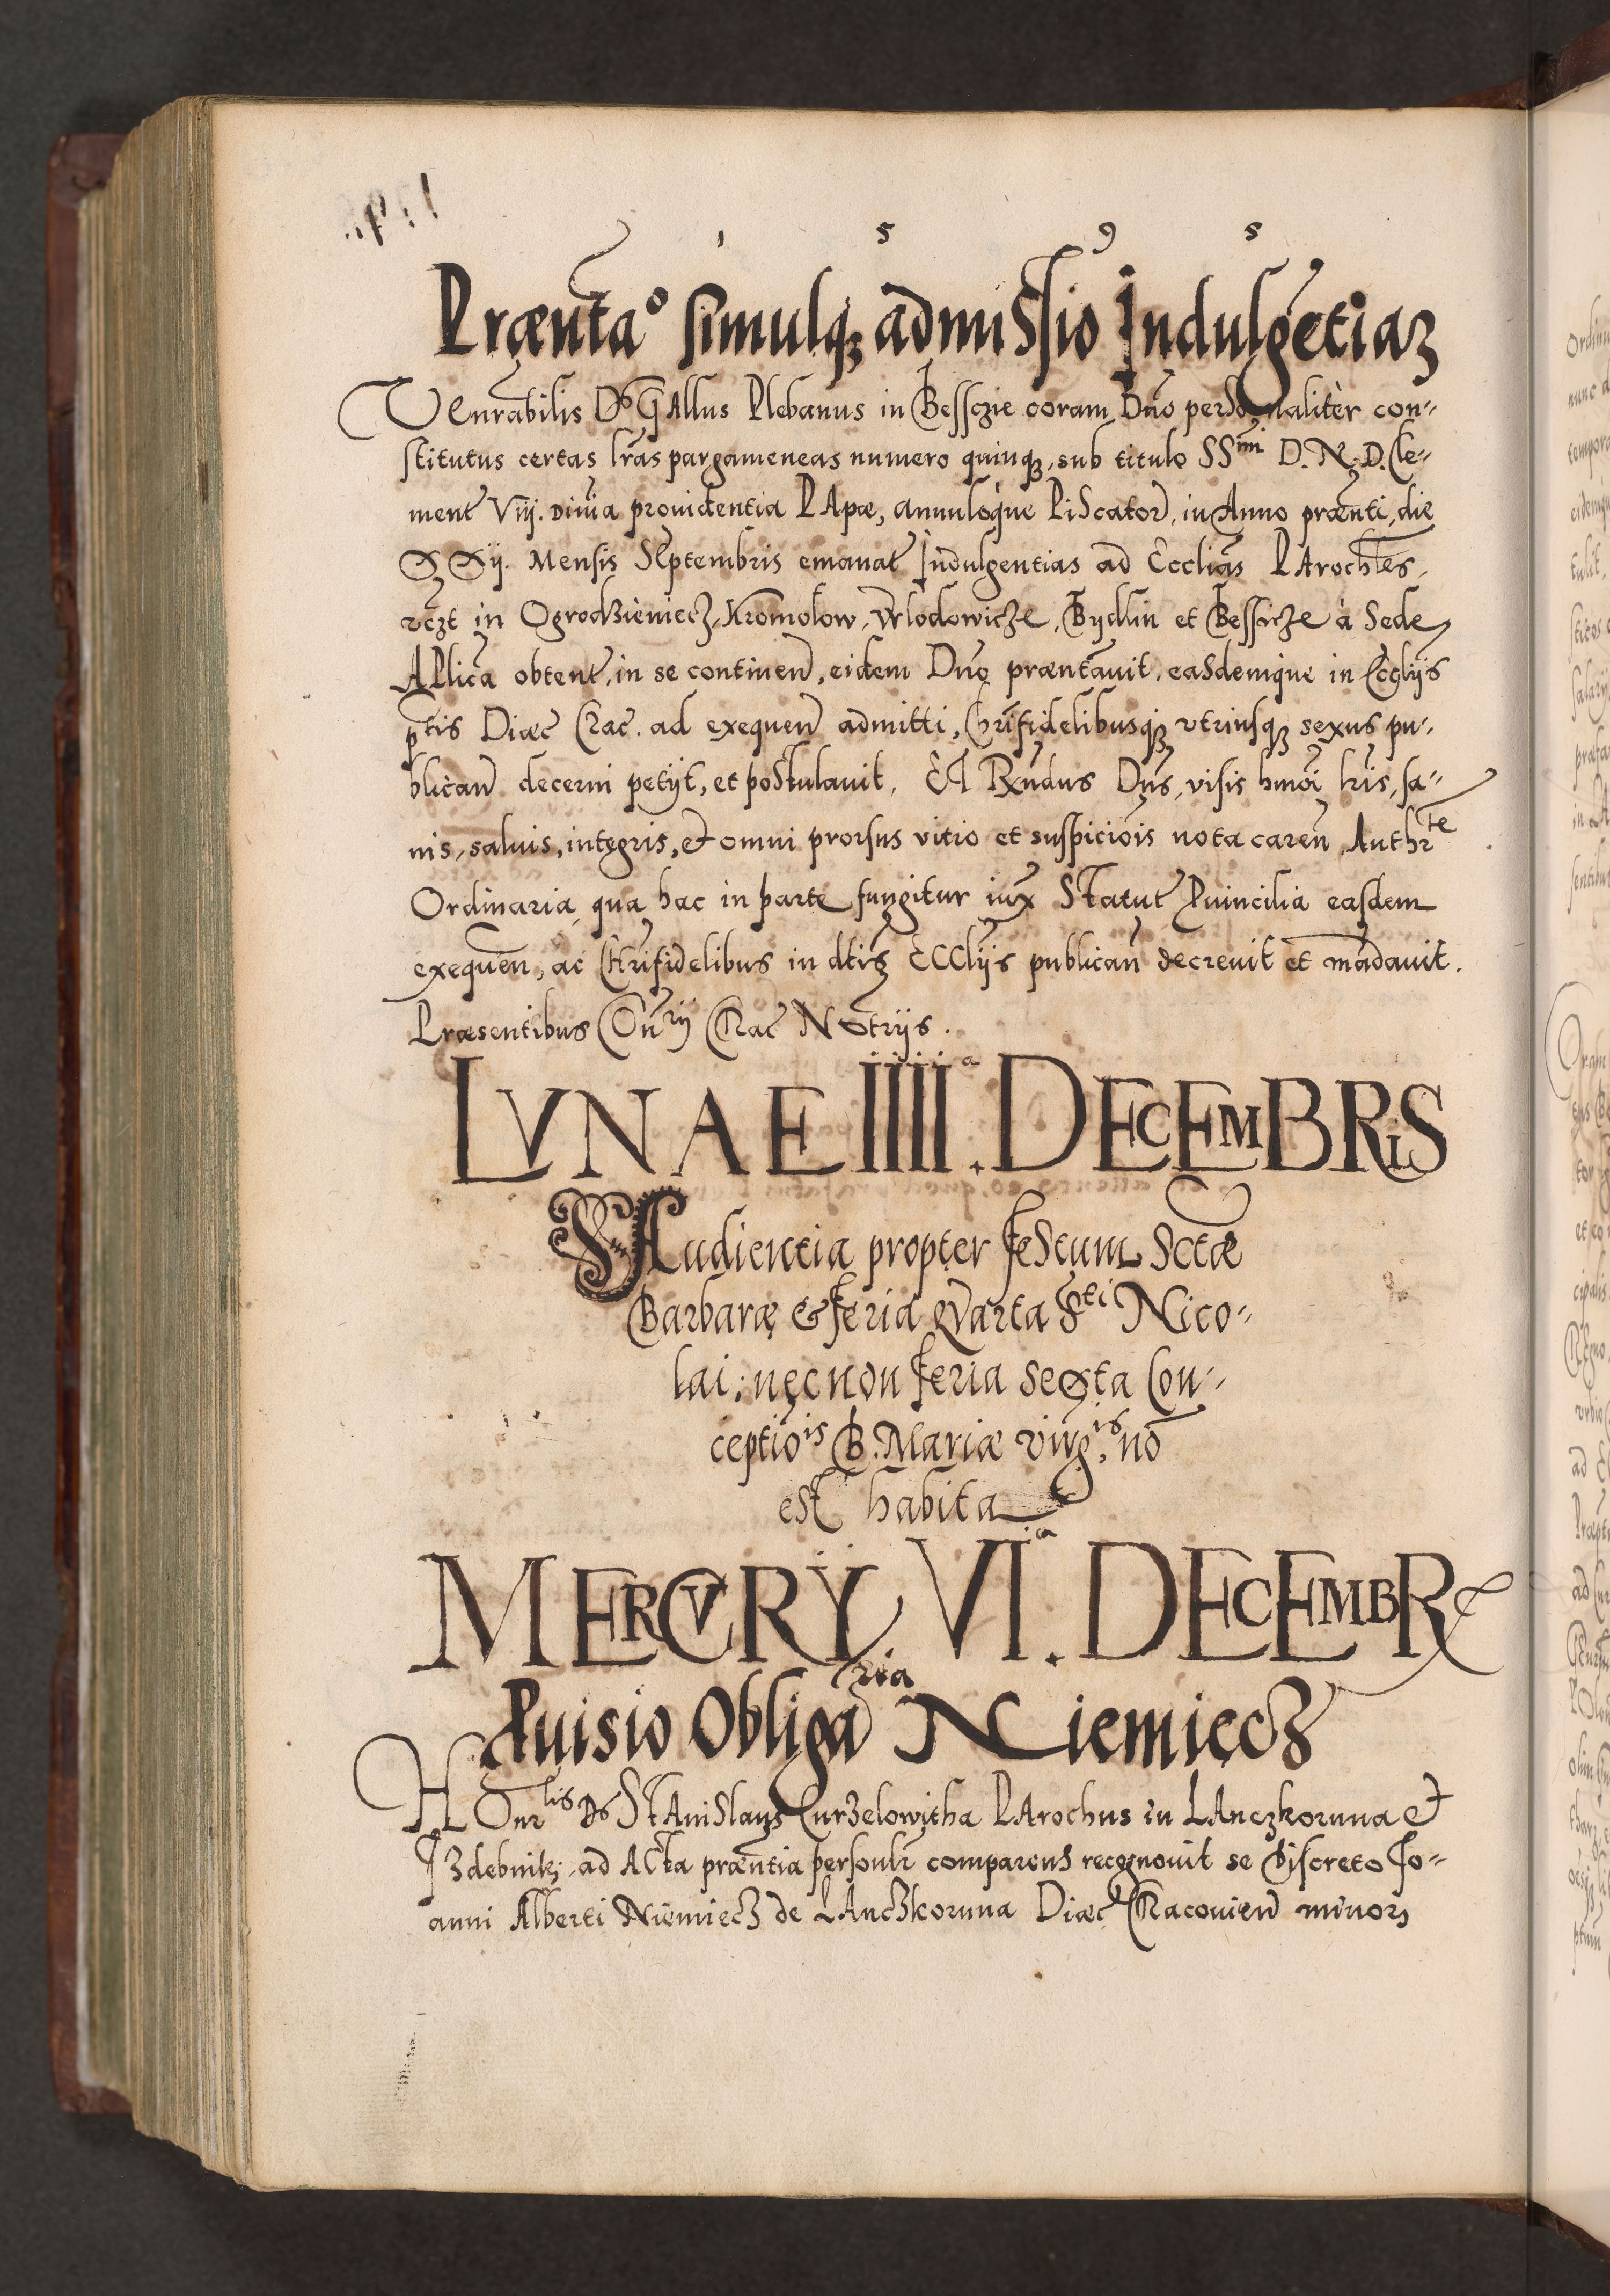 1 5 9 5
Præntao simulqꝫ admissio Indulgētiaꝝ
Venrabilis Ds Gallus Plebanus in Bessczie coram Dno personaliter con-
stitutus certas lras pargameneas numero quinqꝫ, sub titulo SSmi D. N. D. Cle-
ment VIIj. Diuia prouidentia PApæ, annuloque PiScator, in Anno prænti, die
XXij. Mensis Septembris emanat Indulgentias ad Ecclias PArochles,
vczt in Ogrodzieniecz, Kromolow, Wlodowicze, Bydlin et Bessicze à Sede
APlica obtent, in se continen, eidem Dno præntauit, easdemque in Eccliis
ptis Diæc Crac. ad exequen admitti, Chrifidelibusqꝫ vtriusqꝫ sexus pu-
blican decerni petijt, et postulauit. Et Rxndus Dns, visis hmoi lris, sa-
nis, saluis, integris, et omni prorsus vitio et suspiciois nota caren, Authrte
Ordinaria qua hac in parte fungitur iux Statut Puincilia easdem
exequen, ac Chrifidelibus in dtis Eccliis publican decreuit et mādauit.
Præsentibus Cnrij Crac Notrijs.
LVNAE IIIIa. DECEMBRIS
Audientia propter festum Sctæ
Barbaræ & feria Qvarta Sti Nico-
lai: nec non feria sexta Con-
ceptiois B. Mariæ virgis, nō
est habita
MERCVRY VIa. DECEMBR
Puisio Obligaria Niemiecz
HOnrlis Ds Stanislaus Curzelowitha PArochus in LAnczkoruna et
Izdebnik, ad ACta præntia personlr comparens recognouit se discreto Jo-
anni Alberti Niemiecz de LAnczkoruna Diæc Cracouien minorꝫ